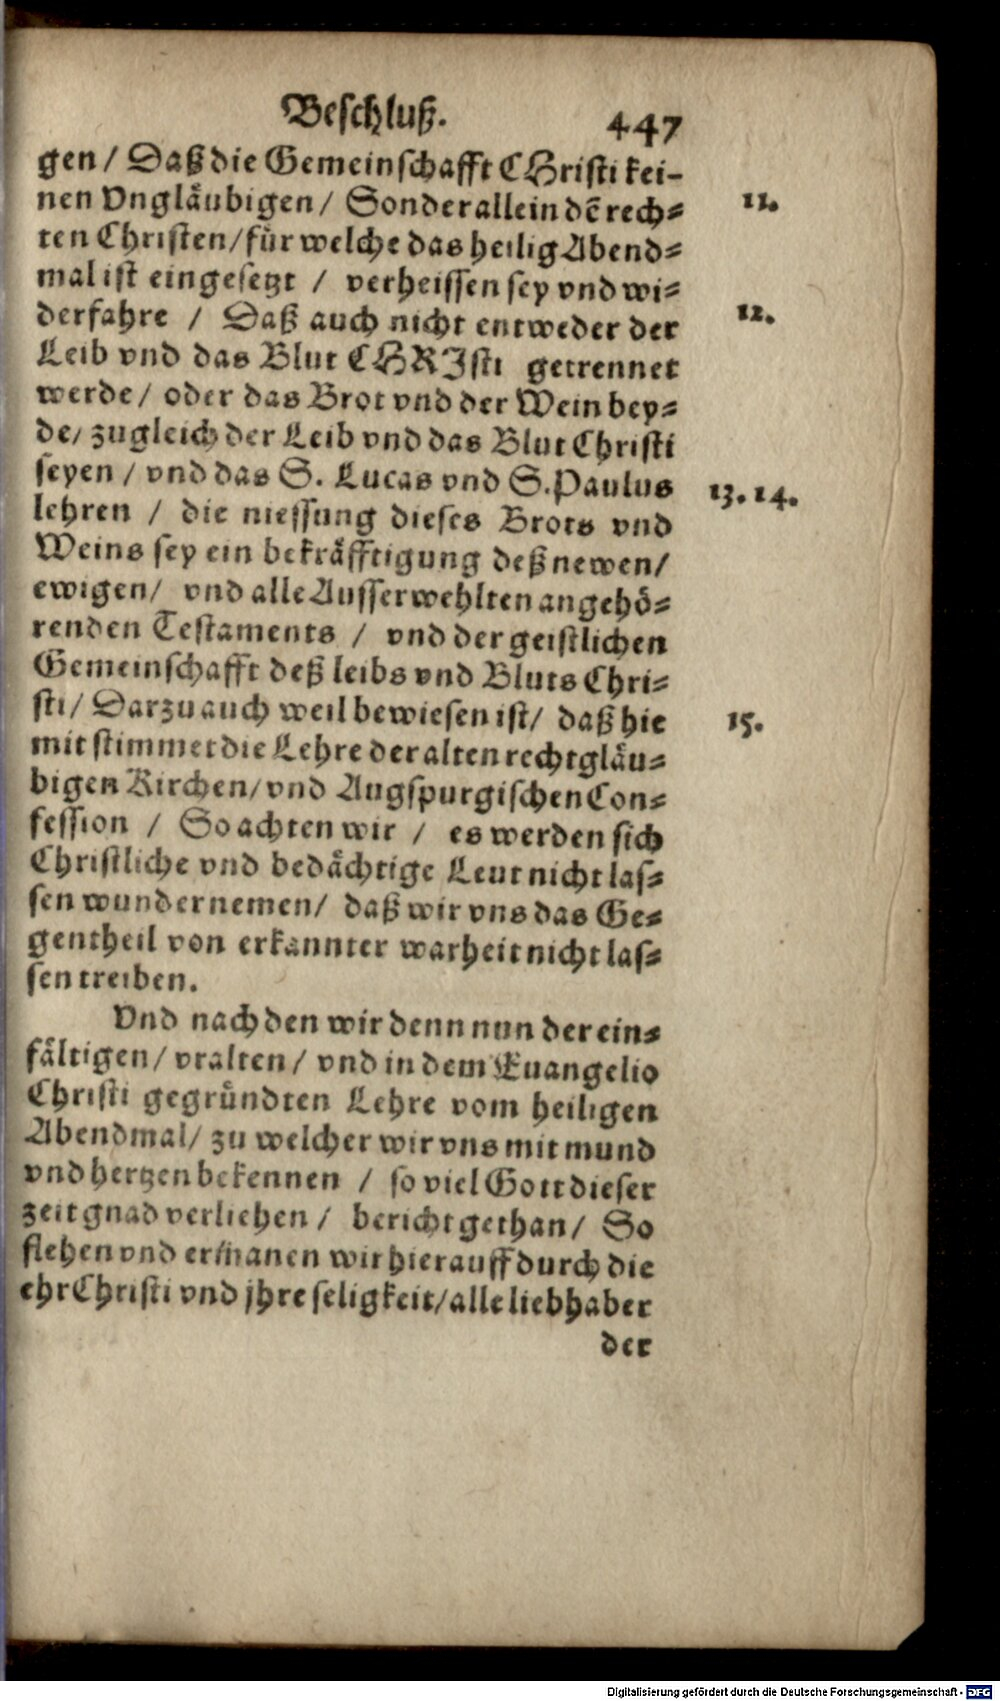 Beschluß. 447
gen / Daß die Gemeinschafft CHristi kei-
nen Vngläubigen / Sonder allein dē rech- 11.
ten Christen / für welche das heilig Abend-
mal ist eingesetzt / verheissen sey vnd wi-
derfahre / Daß auch nicht entweder der 12.
Leib vnd das Blut CHRJsti getrennet
werde / oder das Brot vnd der Wein bey-
de / zugleich der Leib vnd das Blut Christi
seyen / vnd das S. Lucas vnd S. Paulus 13. 14.
lehren / die niessung dieses Brots vnd
Weins sey ein bekräfftigung deß newen /
ewigen / vnd alle Ausserwehlten angehö-
renden Testaments / vnd der geistlichen
Gemeinschafft deß leibs vnd Bluts Chri-
sti / Darzu auch weil bewiesen ist / daß hie 15.
mit stimmet die Lehre der alten rechtgläu-
bigen Kirchen / vnd Augspurgischen Con-
fession / So achten wir / es werden sich
Christliche vnd bedächtige Leut nicht las-
sen wunder nemen / daß wir vns das Ge-
gentheil von erkannter warheit nicht las-
sen treiben.
Vnd nach den wir denn nun der ein-
fältigen / vralten / vnd in dem Euangelio
Christi gegründten Lehre vom heiligen
Abendmal / zu welcher wir vns mit mund
vnd hertzen bekennen / so viel Gott dieser
zeit gnad verliehen / bericht gethan / So
flehen vnd ermanen wir hierauff durch die
ehr Christi vnd jhre seligkeit / alle liebhaber
der
Digitalisierung gefördert durch die Deutsche Forschungsgemeinschaft - DFG